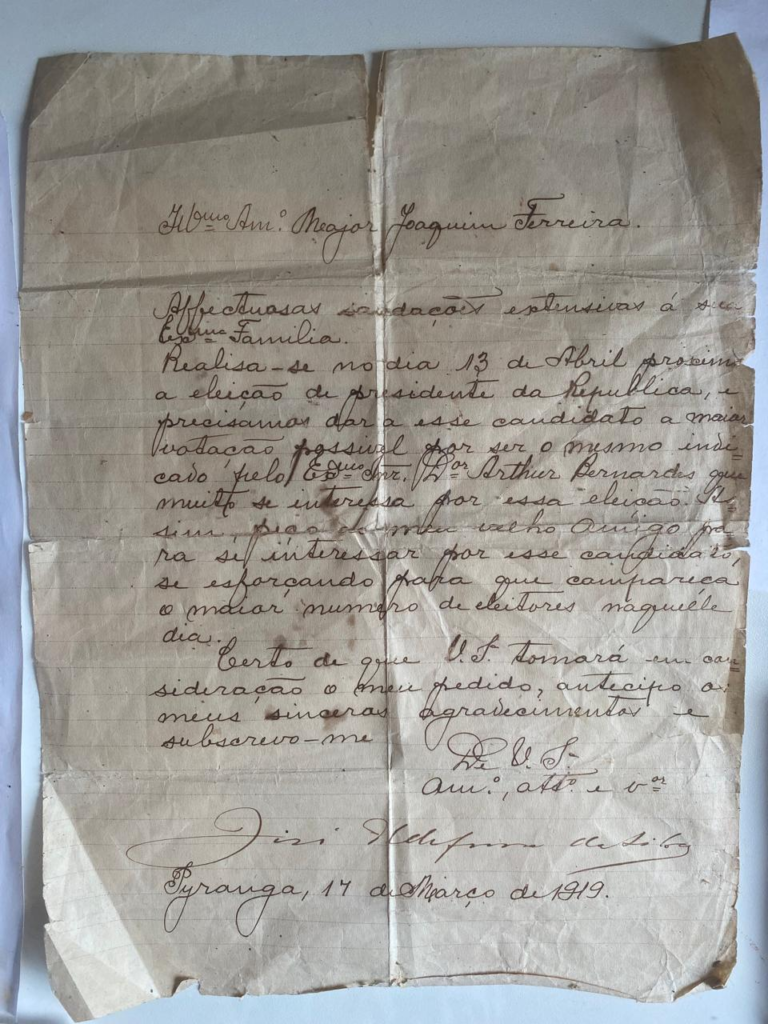 Ill^mo Am.º Major Joaquim Ferreira.
Affectuosas saudações extensivas á su
Ex^ma Familia.
Realisa-se no dia 13 de Abril proxim
a eleição de presidente da Republica, e
precisâmos dar a esse candidato a maior
votação possivel por ser o mesmo indi=
cado pelo Ex^mo Snr. D^or Arthur Bernardes que
muito se interessa por essa eleição. As=
sim, peço ao meu velho Amigo pa=
ra se interessar por esse candidato,
se esforçando para que compareça
o maior numero de eleitores naquelle
dia.
Certo de que V. S. tomará em con=
sideração o meu pedido, antecipo os
meus sinceros agradecimentos e
subscrevo-me
De V. S.
Am.º, att.º e
José Ildefonso da Silva
Pyranga, 17 de Março de 1919.